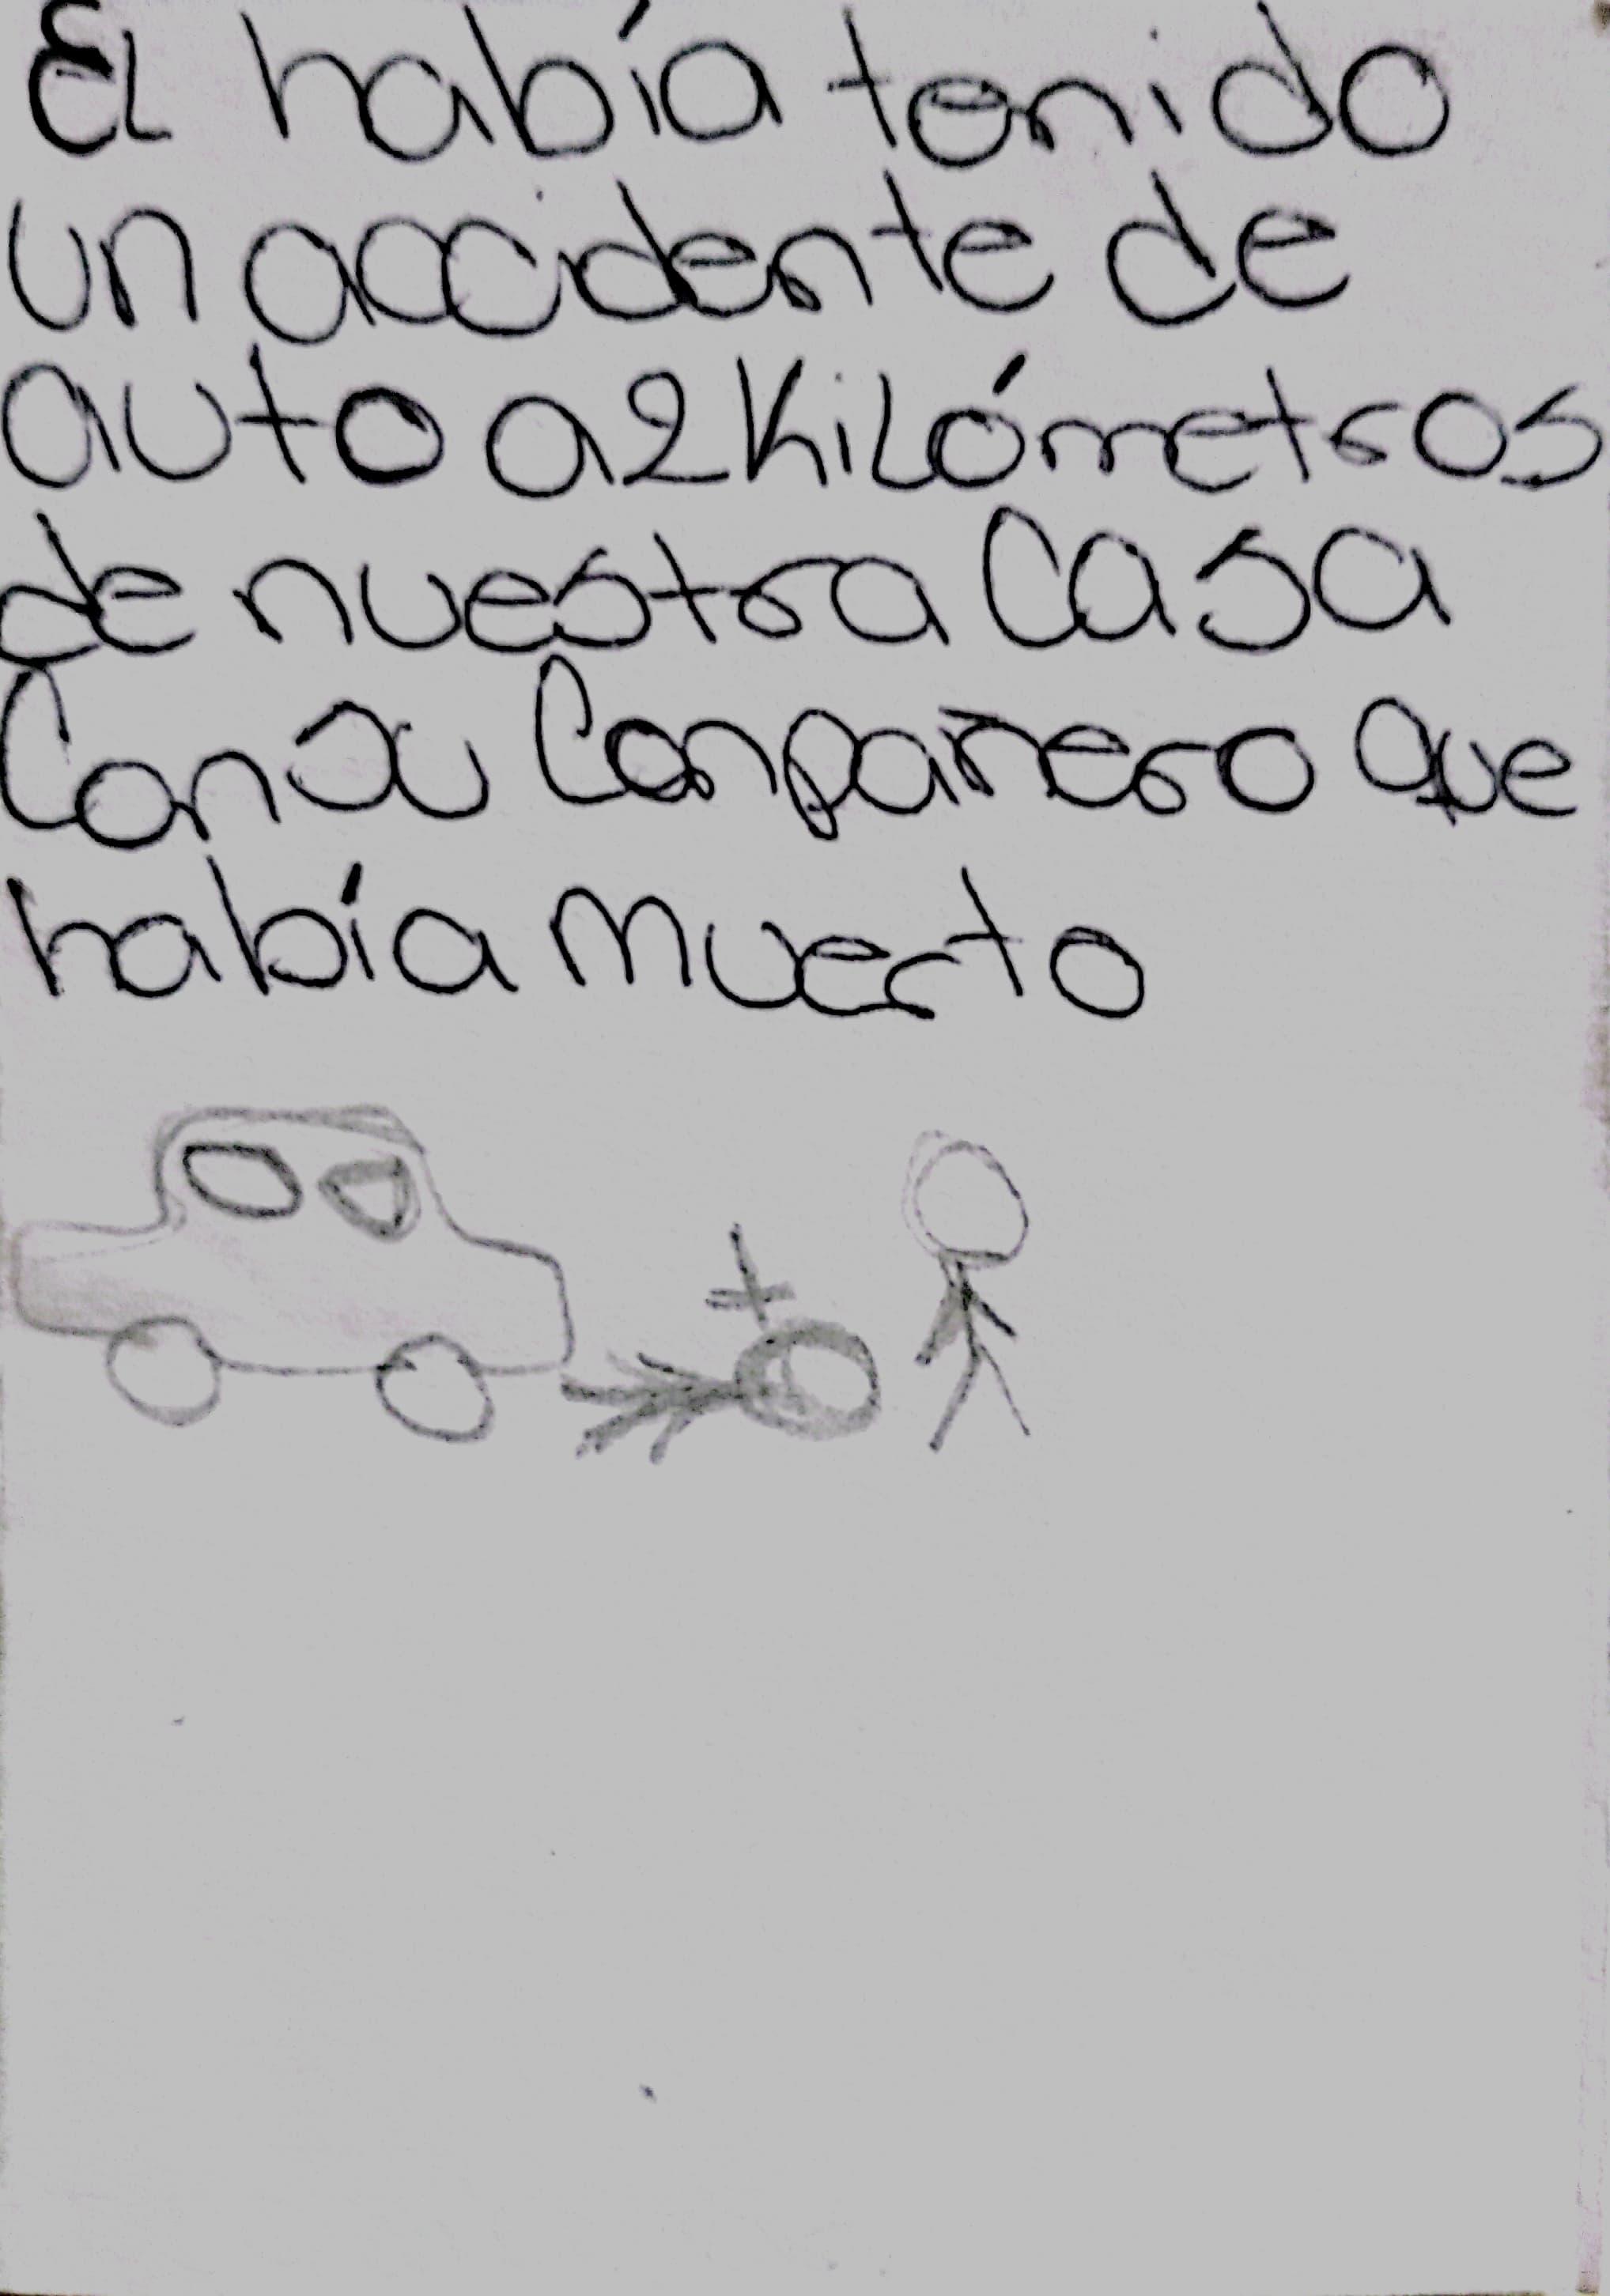 El había tenido
un accidente de
auto a 2 Kilómetros
de nuestra Casa
Con su Conpañero que
había muerto